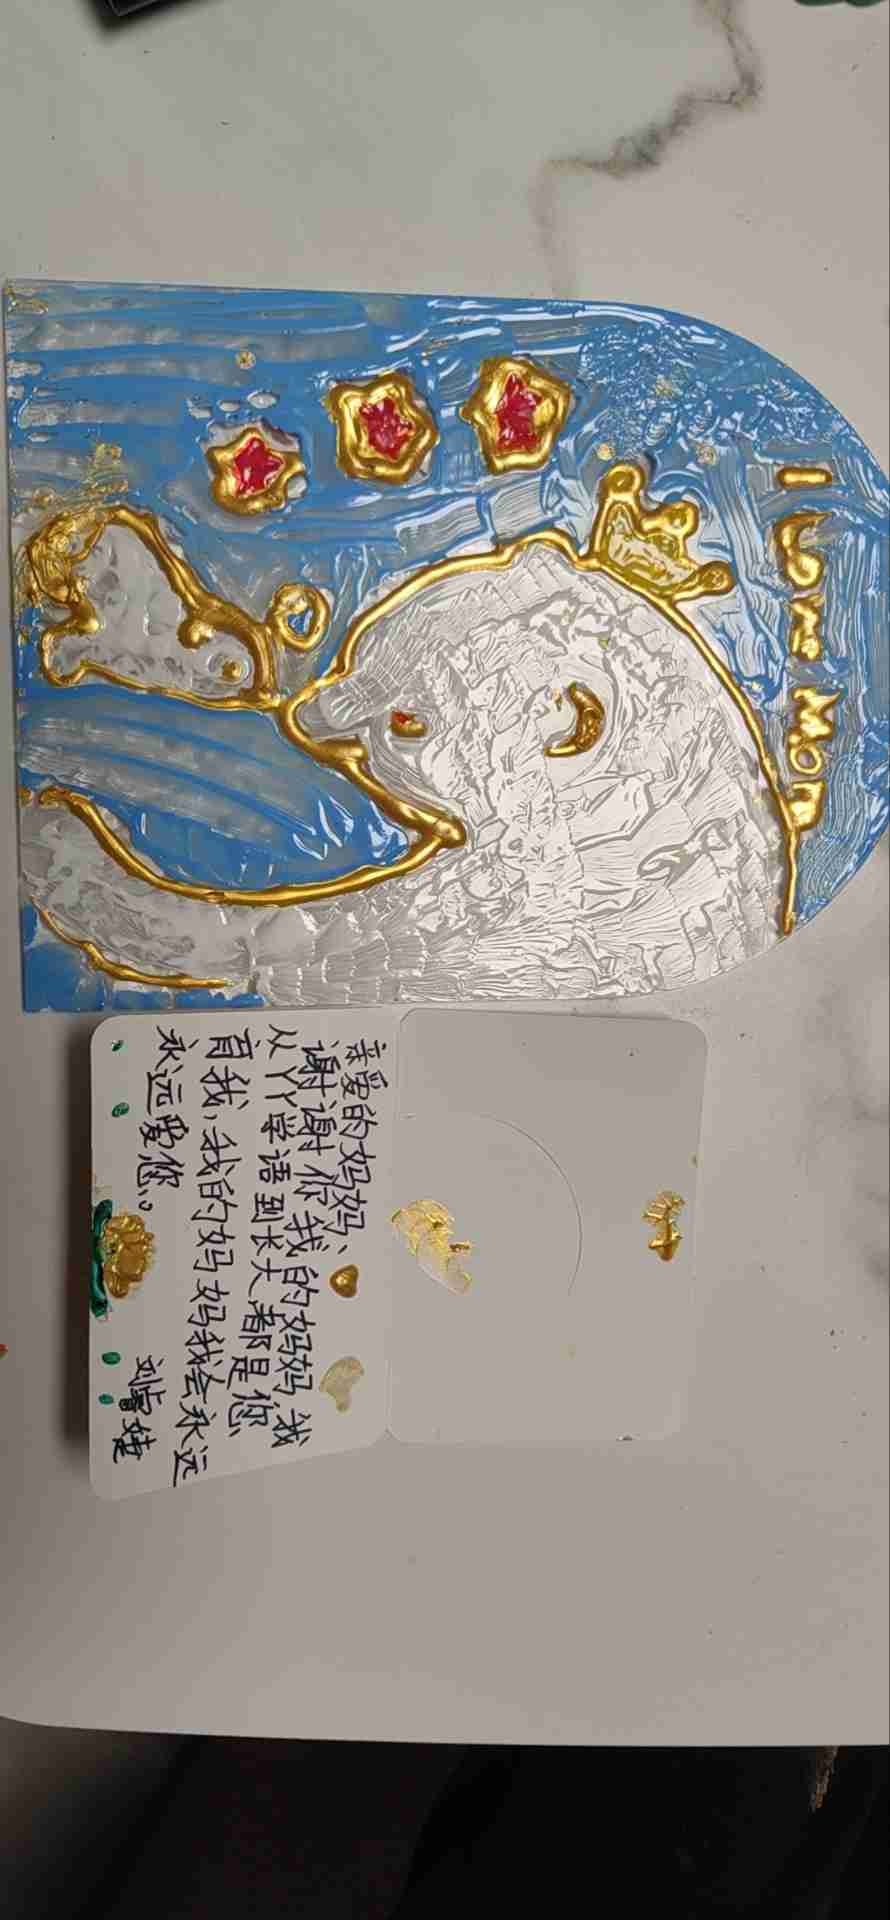 I Love Mom
亲爱的妈妈、
谢谢你我的妈妈 我
从丫丫学语到长大,都是您、
育我,我的妈妈我会永远
永远爱您。
刘睿婕